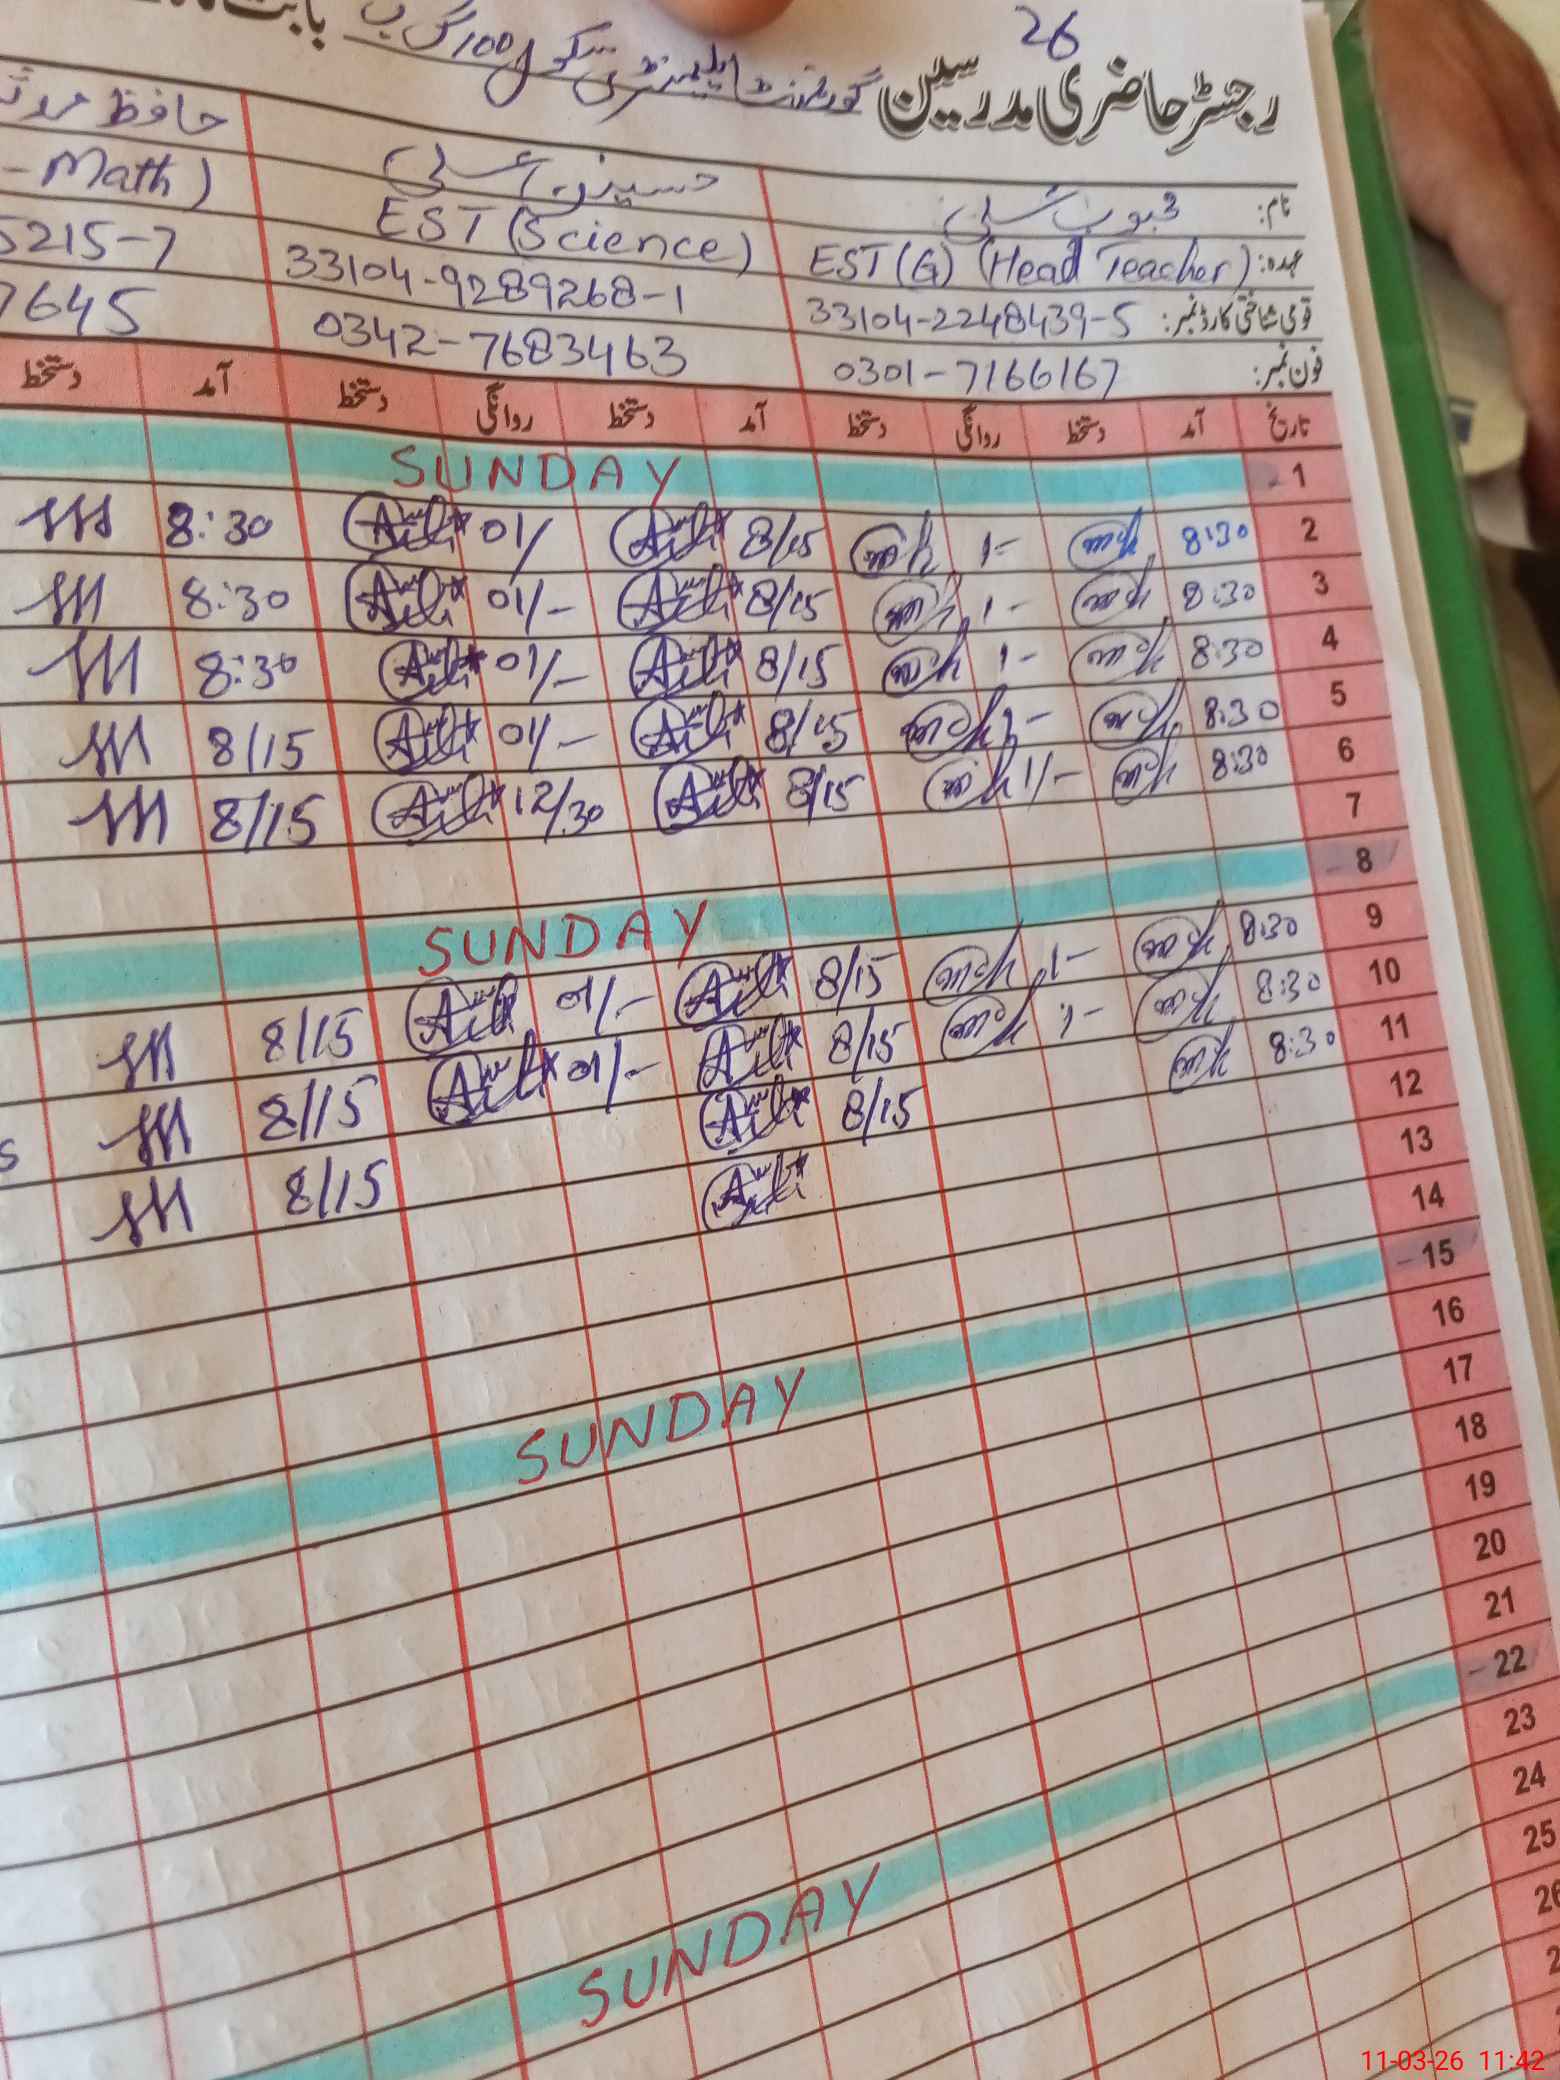 26
رجسٹر حاضری مدرسین گورنمنٹ ایلیمنٹری سکول 100 گ ب بابت
نام: محبوب علی حسنین علی حافظ
عہدہ: EST (G) (Head Teacher) EST (Science) -Math)
قومی شناختی کارڈ نمبر: 33104-2248439-5 33104-9289268-1 5215-7
فون نمبر: 0301-7166167 0342-7683463 7645
تاریخ آمد دستخط روانگی دستخط آمد دستخط روانگی دستخط آمد دستخط
1 SUNDAY
2 8:30 1- 8/15 01/ 8:30
3 8:30 1- 8/15 01/- 8:30
4 8:30 1- 8/15 01/- 8:30
5 8:30 8/15 01/- 8/15
6 8:30 1/- 8/15 12/30 8/15
7
8 SUNDAY
9 8:30 1- 8/15 01/- 8/15
10 8:30 1- 8/15 01/- 8/15
11 8:30 8/15 8/15
12
13
14
15 SUNDAY
16
17
18
19
20
21
22 SUNDAY
23
24
25
11-03-26 11:42